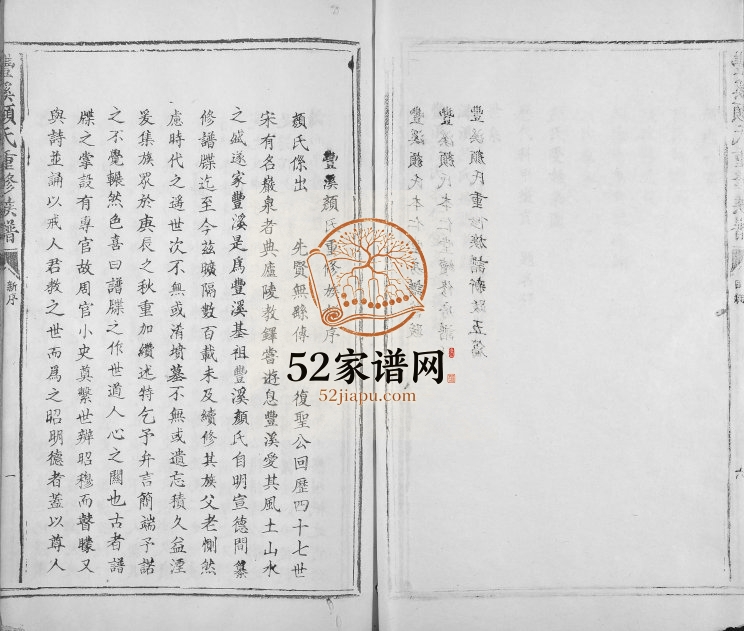 豐溪顏氏重修族譜新跋五篇
豐溪顏氏本仁堂續修族譜
豐溪顏氏本仁
六
豐溪顏氏重修族 序
顏氏傑出 先賢無繇傳 復聖公回歷四十七世
宋有名巖泉者典廬陵教鐸嘗遊息豐溪愛其風土山水
之娍遂家豐溪是爲豐溪基祖豐溪顏氏自明宣德間纂
修譜牒迄至今茲曠隔數百載未及續修其族父老惻然
慮時代之遥世次不無或淆墳墓不無或遺忘積久益湮
爰集族眾於庚辰之秋重加纘述特乞予弁言簡端予諾
之不覺囅然色喜曰譜牒之作世道人心之關也古者譜
牒之掌設有專官故周官小史奠繫世辯昭穆而瞽矇又
與詩並誦以戒人君教之世而爲之昭明德者葢以尊人
豐溪顏氏重修族譜
新序
一
52家谱网
52jiapu.com